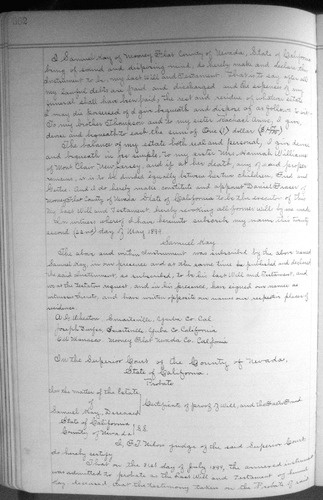 I Samuel Kay of Mooney Flat County of Nevada, State of California
being of sound and disposing mind, do hereby make and declare this
instrument to be my last Will and Testament. That is to say, after all
my lawful debts are paid and discharged and the expenses of my
funeral shall have been paid, the rest and residue of whatever estate
I may die possessed of I give bequeath and dispose of as follows to wit:
To my brother Thompson and to my sister Rachael Ann, I give
devise and bequeath each the sum of One (1) dollar
The balance of my estate both real and personal, I give devise
and bequeath in fee simple to my sister Mrs Hannah Williams
of West Clear New and if at her death any of said property
remain, it is to be divided equally between her two children, Fred and
And I do hereby make constitute and appoint Daniel
of Mooney Flat County of Nevada State of California to be the executor of this
my last Will and Testament, hereby revoking all former wills by me made
In witness whereof I have hereunto subscribe my name this twenty
second (22nd) day of May 1899.
Samuel Kay
The above and within instrument was subscribed by the above named
Samuel Kay, in our presence and at the same time he published and declared
the said instrument, so subscribed, to be his last Will and Testament, and
we at the testators request, and in his presence, have signed our names as
witnesses thereto, and have written opposite our names our respective places of
residence.
A. G. Smartsville, Yuba Co. Cal
Joseph Smartsville, Yuba Co. California
Mooney Flat Nevada Co. California
In the Superior Court of the County of Nevada,
State of California.
Probate
In the matter of the Estate
of
Samuel Kay, Deceased
Certificate of proof of Will, and the Facts Found
State of California
County of Nevada } SS
I, F. T. Nilon judge of the said Superior Court
do hereby certify
That on the 31st day of July 1899, the annexed instrument
was admitted to probate as the last Will and Testament of Samuel
Kay deceased that the testimony taken in the Probate of said